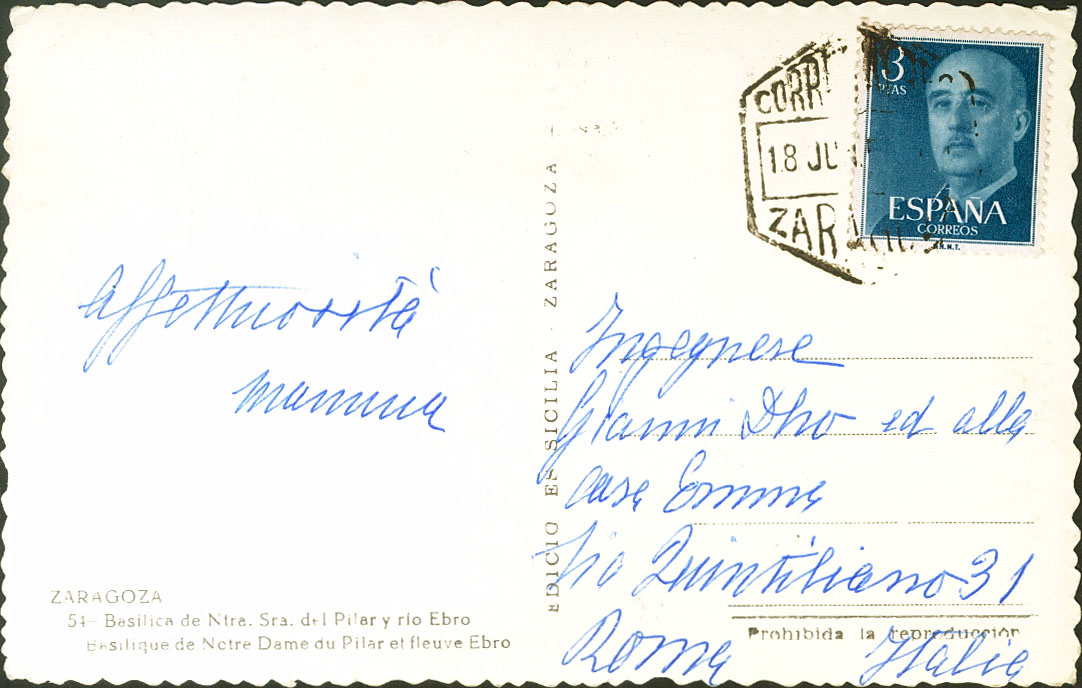 Affettuosità
mamma
ZARAGOZA
54- Basílica de Ntra. Sra. del Pilar y río Ebro
Basilique de Notre Dame du Pilar et fleuve Ebro
SICILIA · ZARAGOZA
CORRE
18 JU
ZARAGOZ
3
PTAS
ESPAÑA
CORREOS
F.N.M.T.
Ingegnere
Gianni Dho ed alla
cara Emma
Via Quintiliano 31
Roma Italia
Prohibida la reproducción